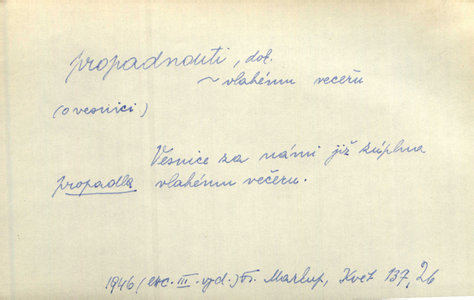 propadnouti, dok.
~ vlahému večeru
(o vesnici)
Vesnice za námi již zúplna
propadla vlahému večeru.
1946 (exc. III. vyd.) Fr. Marlup, Květ 137, 26